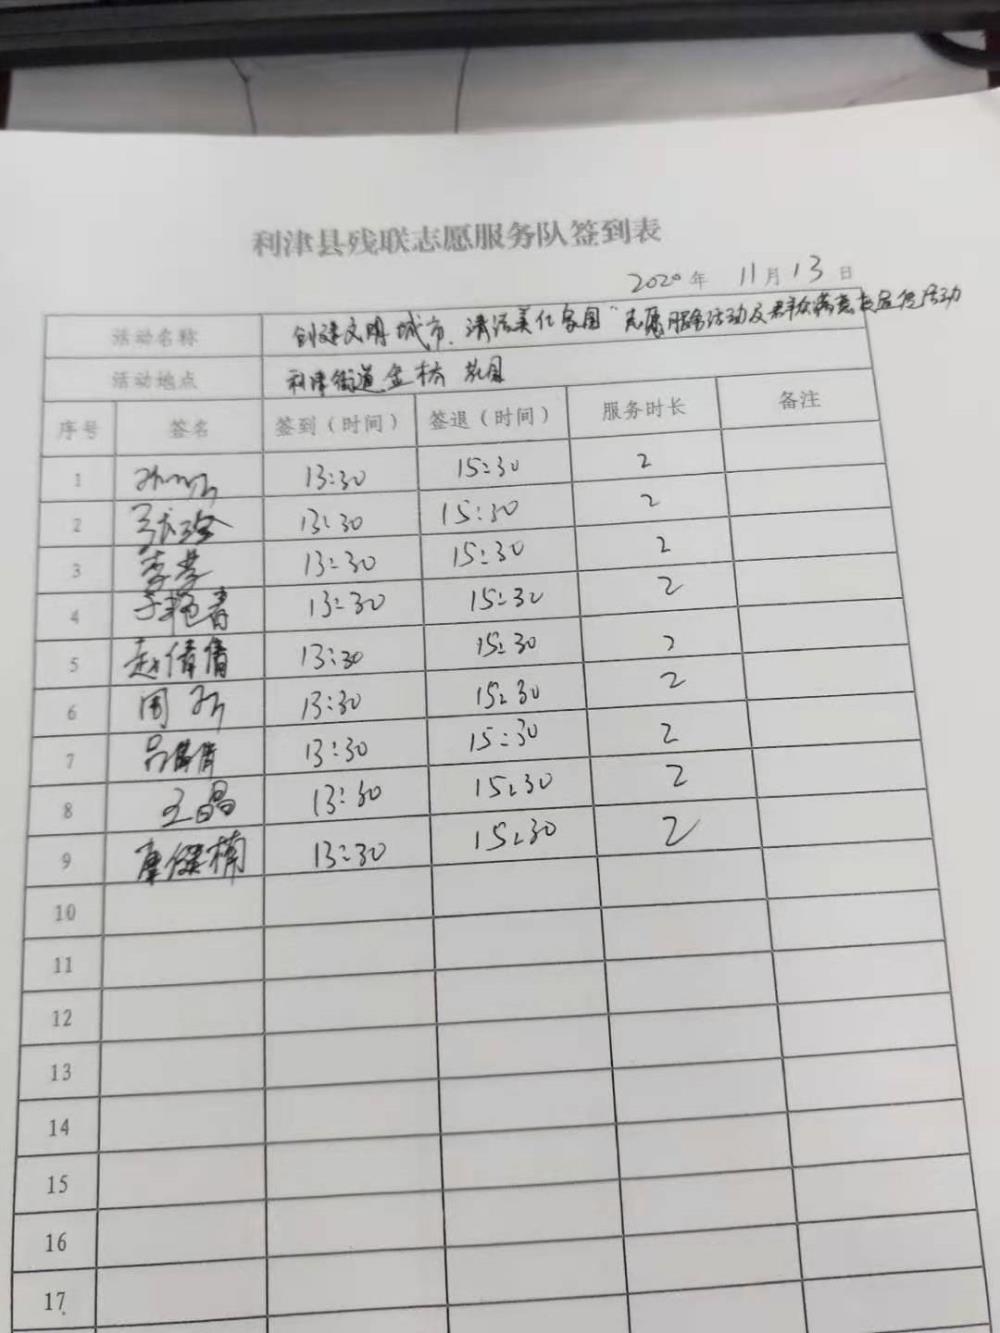 利津县残联志愿服务队签到表
2020年 11月13日
活动名称 创建文明城市、清洁美化家园"志愿服务活动及群众满意度宣传活动
活动地点 利津街道金桥花园
序号 签名 签到（时间） 签退（时间） 服务时长 备注
1 13:30 15:30 2
2 张玲 13:30 15:30 2
3 李梦 13:30 15:30 2
4 于艳春 13:30 15:30 2
5 赵倩倩 13:30 15:30 2
6 周 13:30 15:30 2
7 吕倩倩 13:30 15:30 2
8 王晶 13:30 15:30 2
9 楠 13:30 15:30 2
10
11
12
13
14
15
16
17